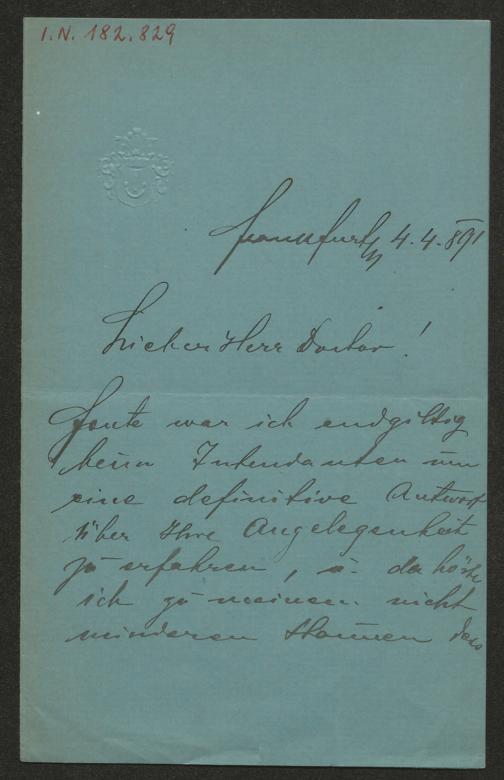 I.N. 182.829
Frankfurt 4.4.891
Lieber Herr Doctor!
Heute war ich endgiltig
beim Intendanten um
eine definitive Antwort
über Ihre Angelegenheit
zu erfahren, u. da hörte
ich zu meinem nicht
minderen Staunen dass